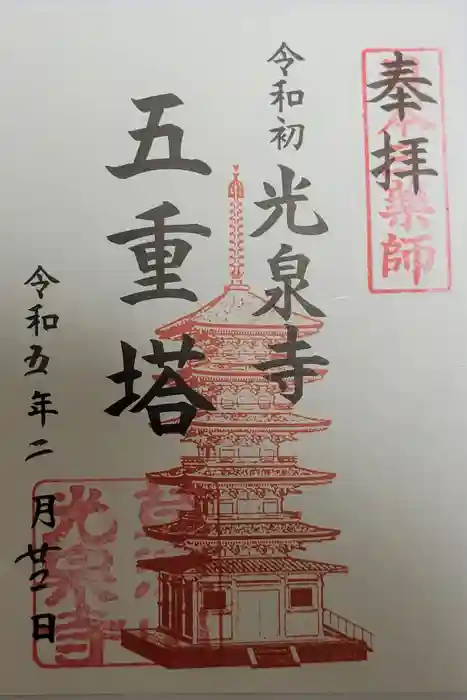 奉拝
薬師
令和初
光泉寺
五重塔
令和五年二月廿二日
光泉寺